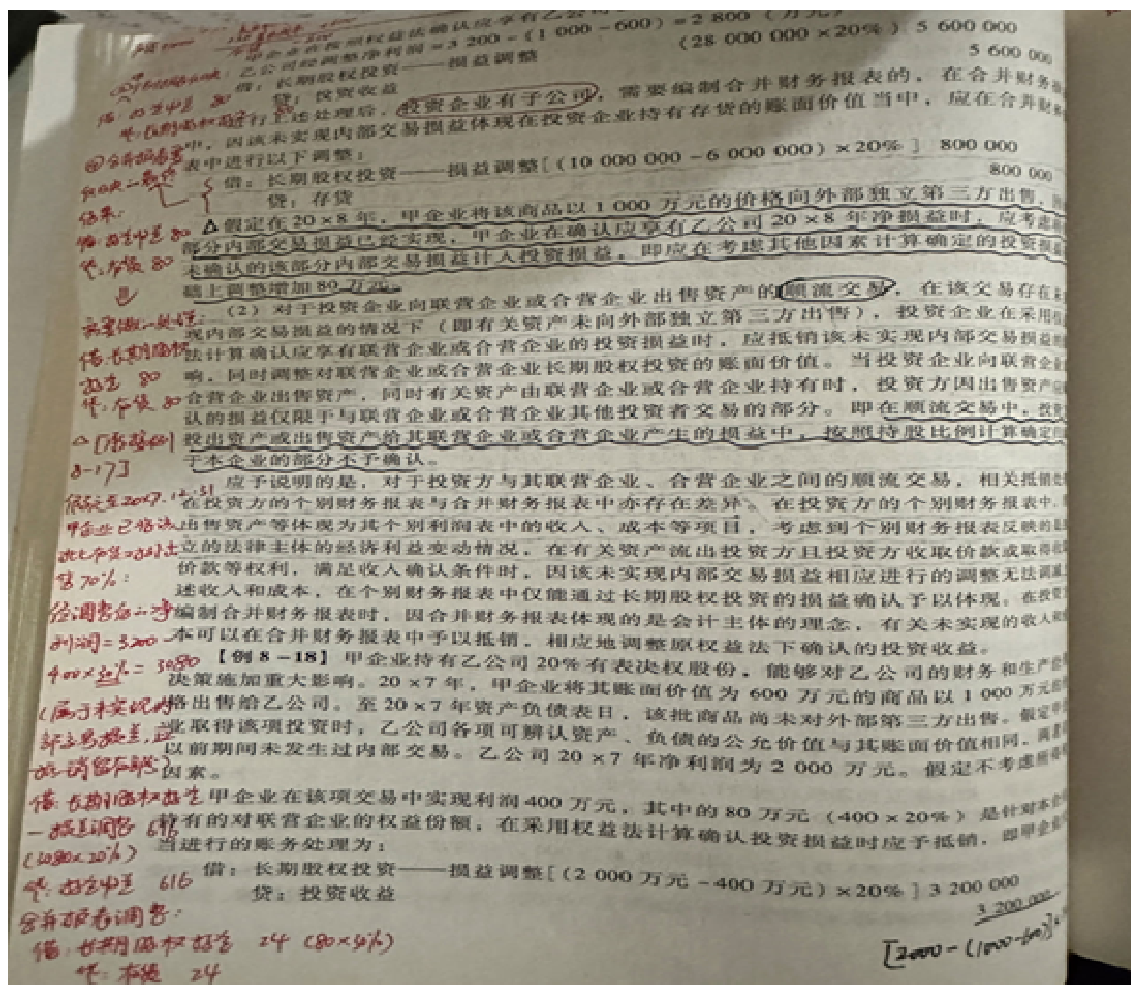 甲企业在按照权益法确认应享有乙公司
乙公司经调整净利润=3 200-(1 000-600)=2 800(万元)
借:长期股权投资——损益调整 (28 000 000×20%) 5 600 000
贷:投资收益 5 600 000
进行上述处理后,投资企业有子公司,需要编制合并财务报表的,在合并财务
中,因该未实现内部交易损益体现在投资企业持有存货的账面价值当中,应在合并财务
表中进行以下调整:
借:长期股权投资——损益调整[(10 000 000-6 000 000)×20%] 800 000
贷:存货 800 000
△假定在20×8年,甲企业将该商品以1 000万元的价格向外部独立第三方出售,
部分内部交易损益已经实现,甲企业在确认应享有乙公司20×8年净损益时,应考虑
未确认的该部分内部交易损益计入投资损益,即应在考虑其他因素计算确定的投资损益
础上调整增加80万元。
(2)对于投资企业向联营企业或合营企业出售资产的顺流交易,在该交易存在
现内部交易损益的情况下(即有关资产未向外部独立第三方出售),投资企业在采用
法计算确认应享有联营企业或合营企业的投资损益时,应抵销该未实现内部交易损益
响,同时调整对联营企业或合营企业长期股权投资的账面价值。当投资企业向联营企业
合营企业出售资产,同时有关资产由联营企业或合营企业持有时,投资方因出售资产
认的损益仅限于与联营企业或合营企业其他投资者交易的部分。即在顺流交易中,投资
投出资产或出售资产给其联营企业或合营企业产生的损益中,按照持股比例计算确定
于本企业的部分不予确认。
应予说明的是,对于投资方与其联营企业、合营企业之间的顺流交易,相关抵销处
在投资方的个别财务报表与合并财务报表中亦存在差异。在投资方的个别财务报表中,
出售资产等体现为其个别利润表中的收入、成本等项目,考虑到个别财务报表反映的是
立的法律主体的经济利益变动情况,在有关资产流出投资方且投资方收取价款或取得
价款等权利,满足收入确认条件时,因该未实现内部交易损益相应进行的调整无法调减
述收入和成本,在个别财务报表中仅能通过长期股权投资的损益确认予以体现;在投资
编制合并财务报表时,因合并财务报表体现的是会计主体的理念,有关未实现的收入和
本可以在合并财务报表中予以抵销,相应地调整原权益法下确认的投资收益。
【例8-18】甲企业持有乙公司20%有表决权股份,能够对乙公司的财务和生产经
决策施加重大影响。20×7年,甲企业将其账面价值为600万元的商品以1 000万元的
格出售给乙公司。至20×7年资产负债表日,该批商品尚未对外部第三方出售。假定甲
业取得该项投资时,乙公司各项可辨认资产、负债的公允价值与其账面价值相同,两者
以前期间未发生过内部交易。乙公司20×7年净利润为2 000万元。假定不考虑所得
因素。
甲企业在该项交易中实现利润400万元,其中的80万元(400×20%)是针对本
持有的对联营企业的权益份额,在采用权益法计算确认投资损益时应予抵销,即甲企业
当进行的账务处理为:
借:长期股权投资——损益调整[(2 000万元-400万元)×20%] 3 200 000
贷:投资收益 3 200 000
[2000-(1000-600)]
借:投资收益 80
结果:
借:投资收益 80
贷:存货 80
借:长期股权
投资 80
贷:存货 80
8-17]
甲企业已将该
售70%:
利润=3200-
400×30%=3080
借:长期股权投资
-损益调整 616
(3080×20%)
贷:投资收益 616
合并报表调整:
借:长期股权投资 24 (80×30%)
贷:存货 24